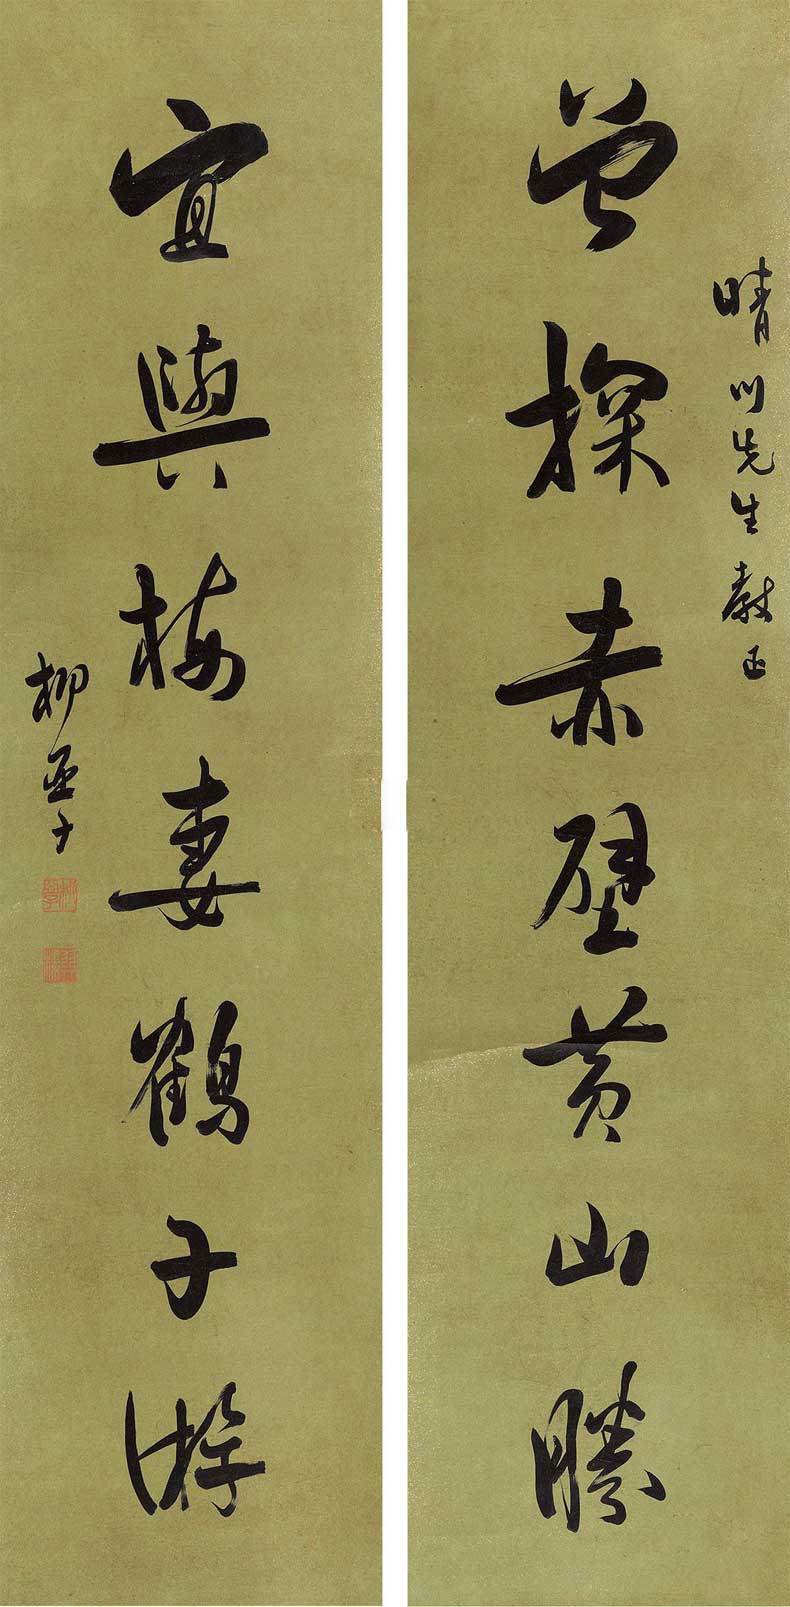 晴川先生教正
曾探赤壁黄山勝
宜與梅妻鶴子游
柳亞子